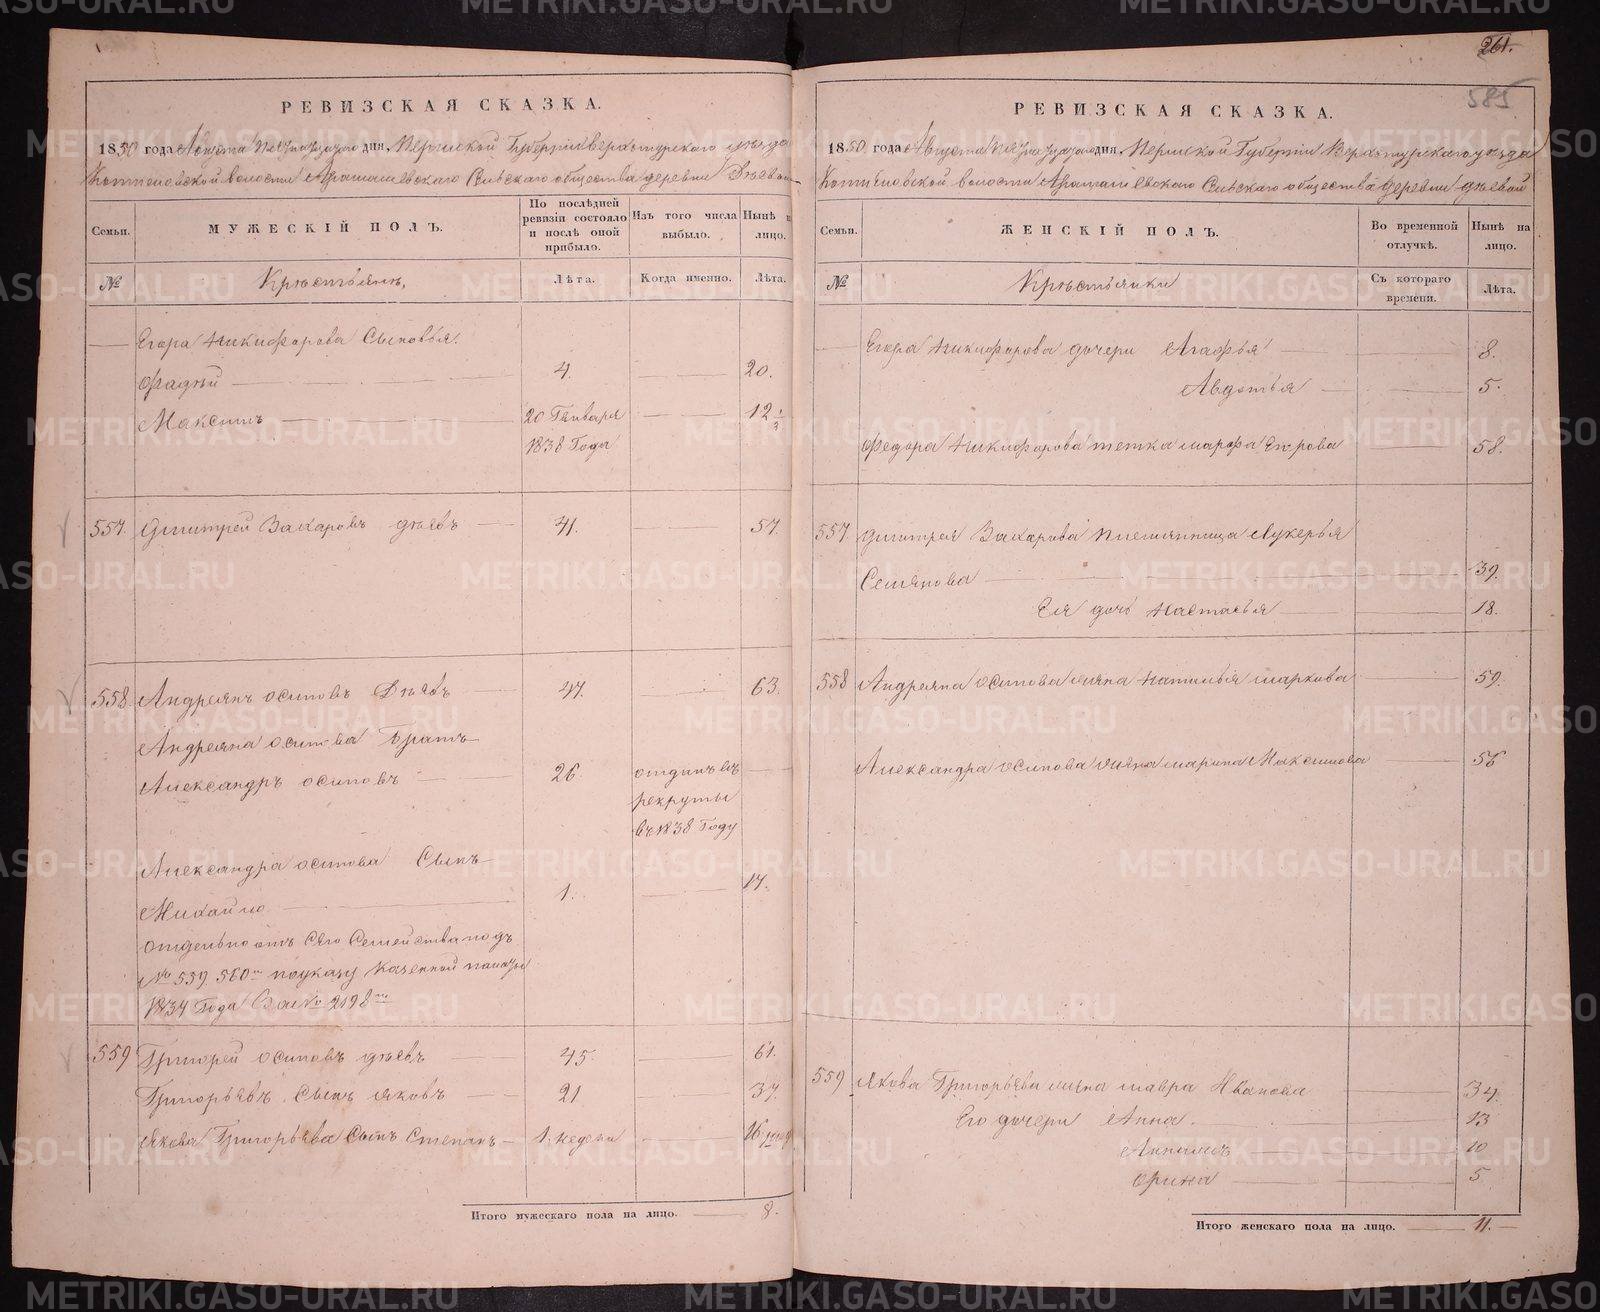 РЕВИЗСКАЯ СКАЗКА.
1850 года Августа дня, Пермской Губернии Верхотурскаго уезда
волости Арамашевскаго Сельскаго общества деревни Деевой
Семьи.
МУЖЕСКІЙ ПОЛЪ.
По послѣдней ревизіи состояло и послѣ оной прибыло.
Изъ того числа выбыло.
Нынѣ на лицо.
№
Крестьянъ,
Лѣта.
Когда именно.
Лѣта.
Егора Никифорова Сыновья.
Фадѣй 4. 20.
Максимъ 20 Генваря 12 1/2
1838 Года
557. Дмитрей Захаровъ Деевъ 41. 57.
558. Андреянъ Осиповъ Деевъ 47. 63.
Андреяна Осипова Братъ
Александръ Осиповъ 26 отданъ въ
рекруты
въ 1838 Году
Александра Осипова Сынъ
Михайло 1. 17.
отдельно отъ Сего Семейства подъ
№ 559. 560 по указу Казенной палаты
1834 Года За № 2198
559 Григорей Осиповъ Деевъ 45. 61.
Григорьевъ Сынъ Яковъ 21 37.
Якова Григорьева Сынъ Степанъ 1. недели 16
Итого мужескаго пола на лицо. 8.
261.
585
РЕВИЗСКАЯ СКАЗКА.
1850. года Августа дня, Пермской Губернии Верхотурскаго уезда
волости Арамашевскаго Сельскаго общества деревни Деевой
Семьи.
ЖЕНСКІЙ ПОЛЪ.
Во временной отлучкѣ.
Нынѣ на лицо.
№
Крестьянки
Съ котораго времени.
Лѣта.
Егора Никифорова дочери Агафья 8.
Авдотья 5.
Федора Никифорова тетка Марфа Егорова 58.
557. Дмитрея Захарова племянница Лукерья
Семенова 39.
Ея дочь Настасья 18.
558 Андреяна Осипова жена Наталья Маркова 59.
Александра Осипова жена Марина Максимова 56
559 Якова Григорьева жена Мавра Иванова 34.
Его дочери Анна. 13
10
Орина 5
Итого женскаго пола на лицо. 11.
METRIKI.GASO-URAL.RU